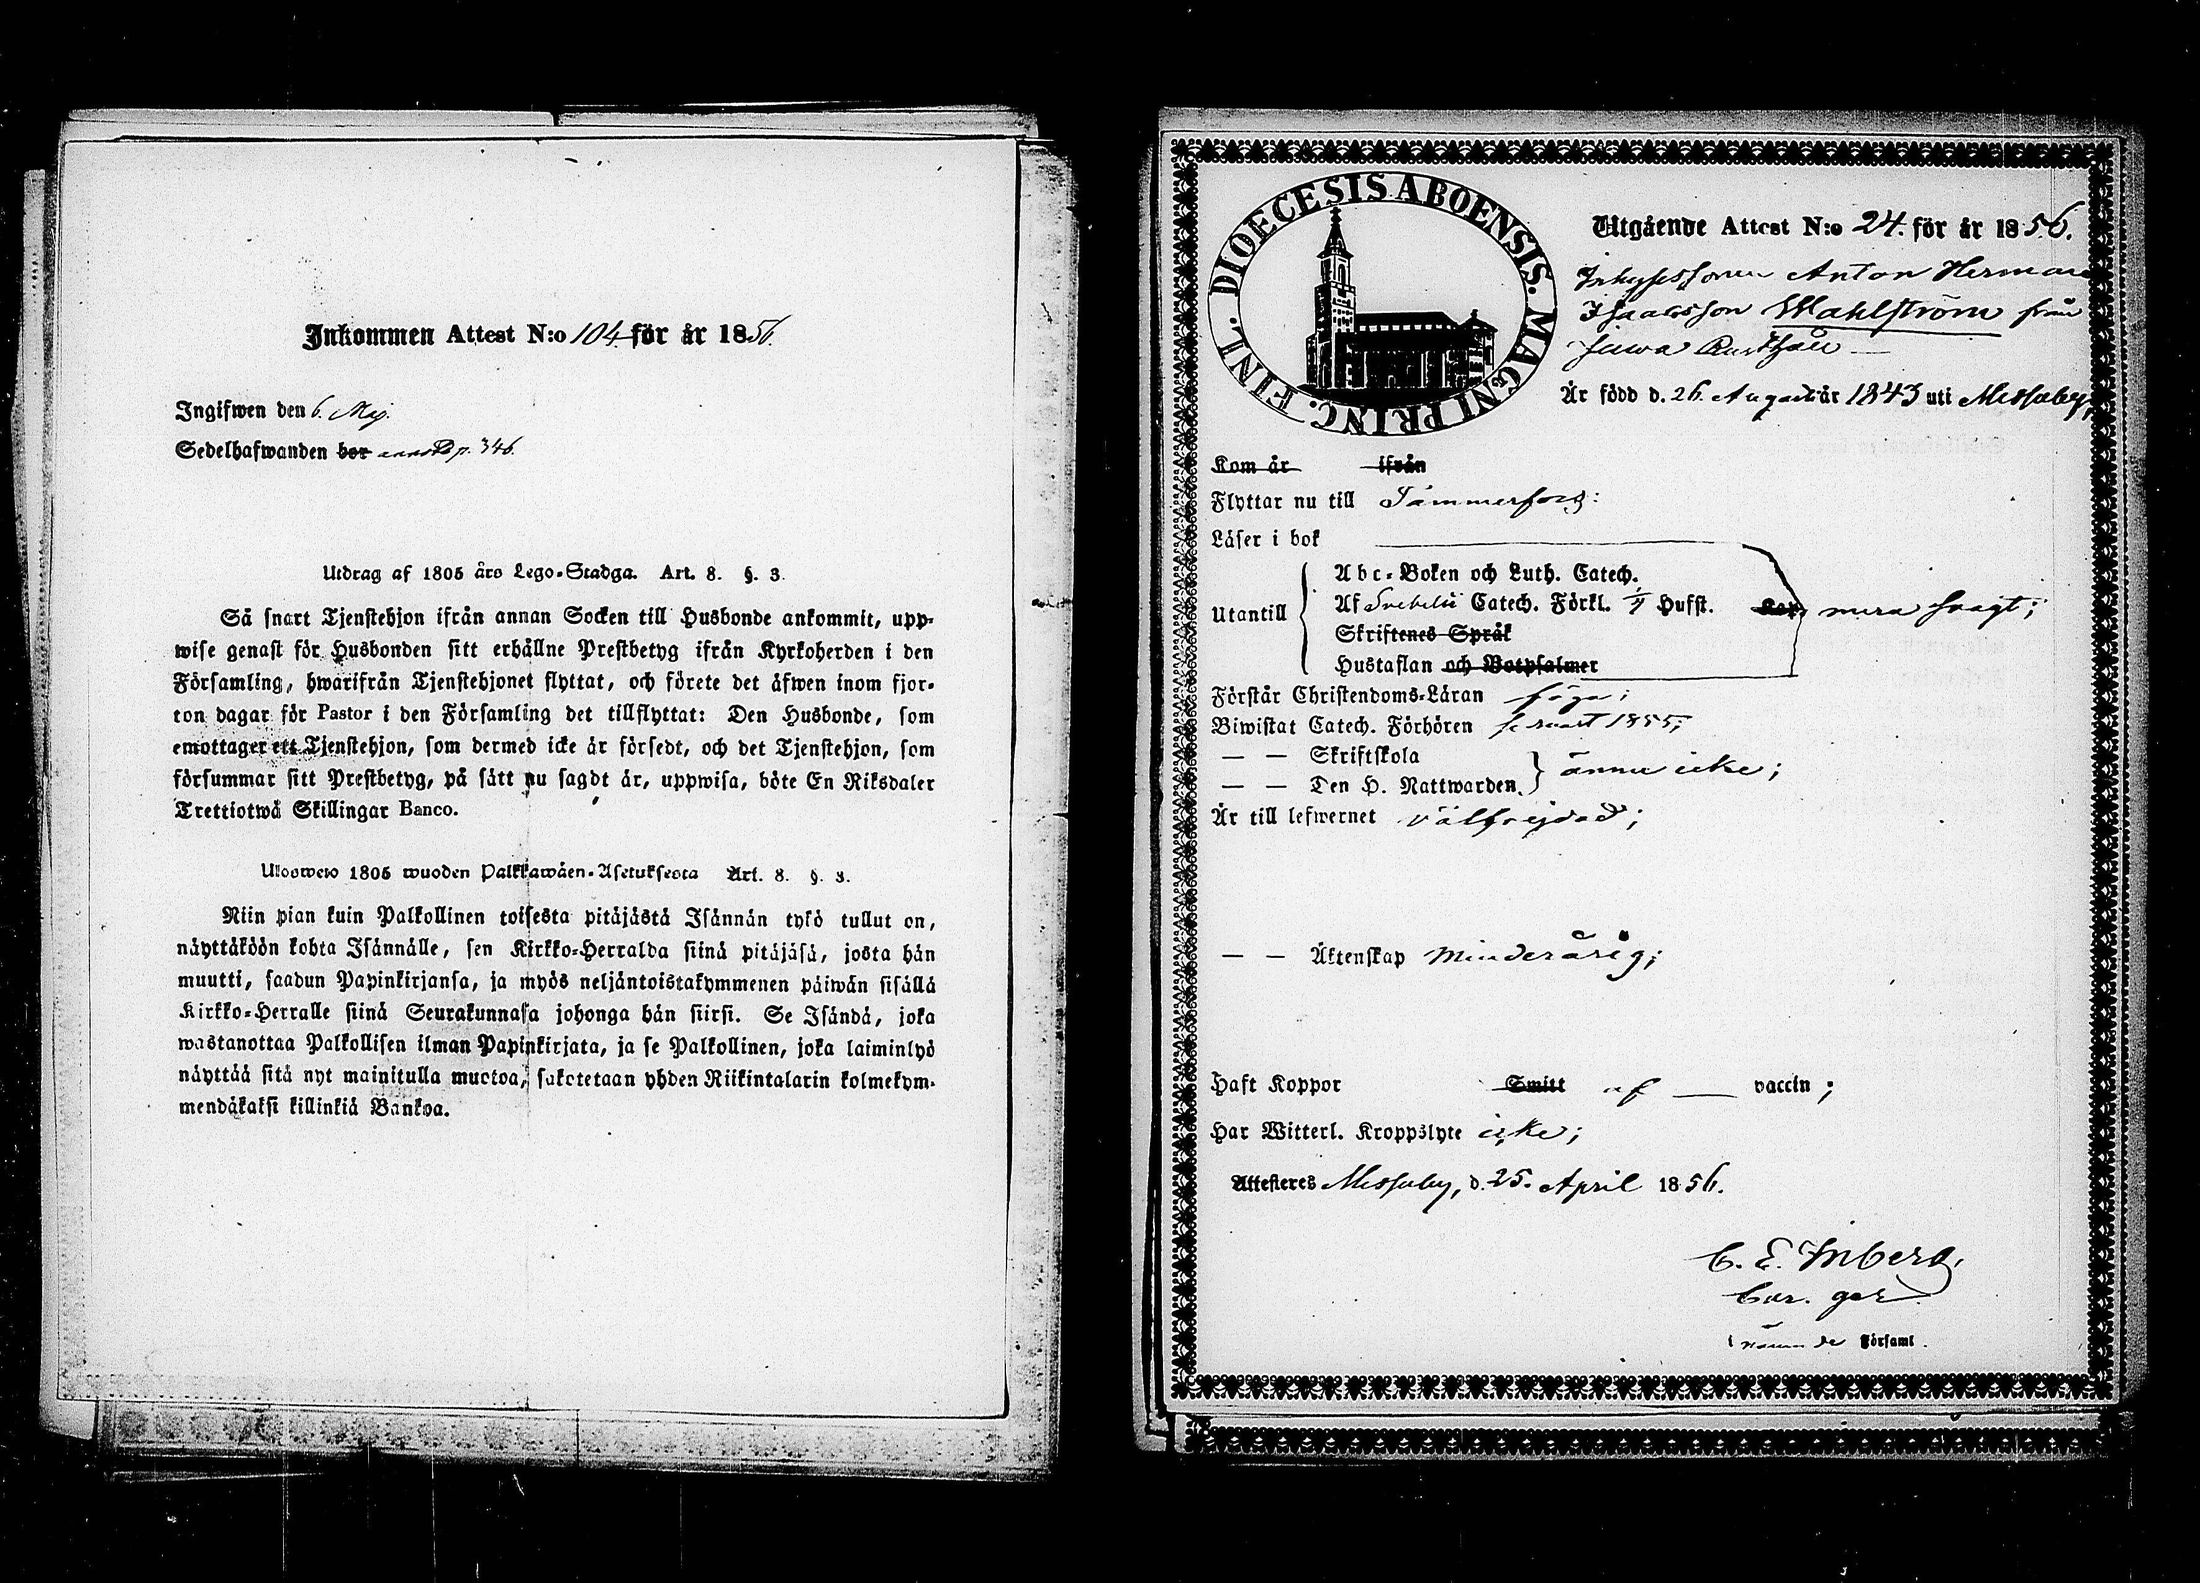 Inkommen Attest N:o 104 för år 1856.
Ingifwen den 6. Maj.
Sedelhafwanden bor annot. p. 346.
Utdrag af 1805 års Lego-Stadga. Art. 8. §. 3.
Så snart Tjenstehjon ifrån annan Socken till Husbonde ankommit, upp-
wise genast för Husbonden sitt erhållne Prestbetyg ifrån Kyrkoherden i den
Församling, hwarifrån Tjenstehjonet flyttat, och förete det äfwen inom fjor-
ton dagar för Pastor i den Församling det tillflyttat: Den Husbonde, som
emottager ett Tjenstehjon, som dermed icke är försedt, och det Tjenstehjon, som
försummar sitt Prestbetyg, på sätt nu sagdt är, uppwisa, böte En Riksdaler
Trettiotwå Skillingar Banco.
Ulosweto 1805 wuoden Palkkawäen-Asetuksesta Art. 8. §. 3.
Niin pian kuin Palkollinen toisesta pitäjästä Isännän tykö tullut on,
näyttäköön kohta Isännälle, sen Kirkko-Herralda siinä pitäjäsä, josta hän
muutti, saadun Papinkirjansa, ja myös neljäntoistakymmenen päiwän sisällä
Kirkko-Herralle siinä Seurakunnasa johonga hän siirsi. Se Isändä, joka
wastanottaa Palkollisen ilman Papinkirjata, ja se Palkollinen, joka laiminlyö
näyttää sitä nyt mainitulla muotoa, sakotetaan yhden Riikintalarin kolmekym-
mendäkaksi killinkiä Bankoa.
DIOECESIS ABOENSIS. MAGNI PRINC. FINL.
Utgående Attest N:o 24. för år 1856.
Inhysessonen Anton Herman
Isaacsson Wahlström från
Rusthåll
Är född d. 26. Augusti år 1843 uti Messuby,
Kom år ifrån
Flyttar nu till Tammerfors:
Läser i bok
Utantill
Abc-Boken och Luth. Catech.
Af Svebelii Catech. Förkl. Hufst. mera svagt;
Skriftenes Språk
Hustaflan och Botpsalmer
Förstår Christendoms-Läran föga;
Biwistat Catech. Förhören senast 1855;
— — Skriftskola
— — Den H. Nattwarden ännu icke;
Är till lefwernet välfrejdad;
— — Äktenskap minderårig;
Haft Koppor Smitt af — vaccin;
Har Witterl. Kroppslyte icke;
Attesteras Messuby, d. 25. April 1856.
C. E. Inberg,
i nämnde Församl.